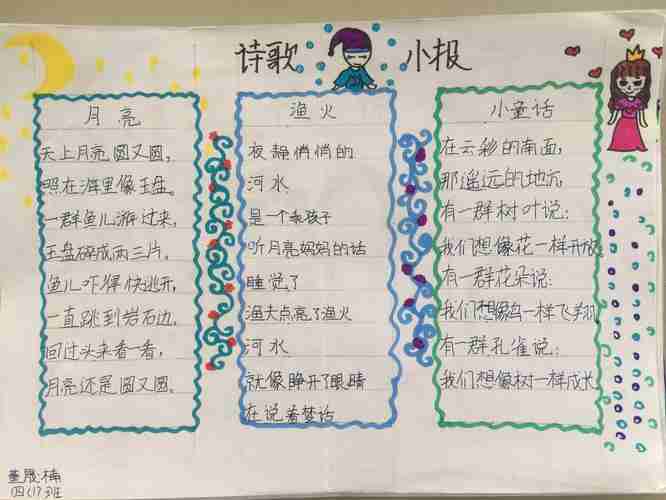 诗歌 小报
月亮
天上月亮圆又圆，
照在海里像玉盘。
一群鱼儿游过来，
玉盘碎成两三片。
鱼儿吓得快逃开，
一直跳到岩石边，
回过头来看一看，
月亮还是圆又圆。
渔火
夜静悄悄的
河水
是一个乖孩子
听月亮妈妈的话
睡觉了
渔夫点亮了渔火
河水
就像睁开了眼睛
在说着梦话
小童话
在云彩的南面，
那遥远的地方，
有一群树叶说：
我们想像花一样开放
有一群花朵说：
我们想像鸟一样飞翔
有一群孔雀说：
我们想像树一样成长
董晟楠
四(1)班